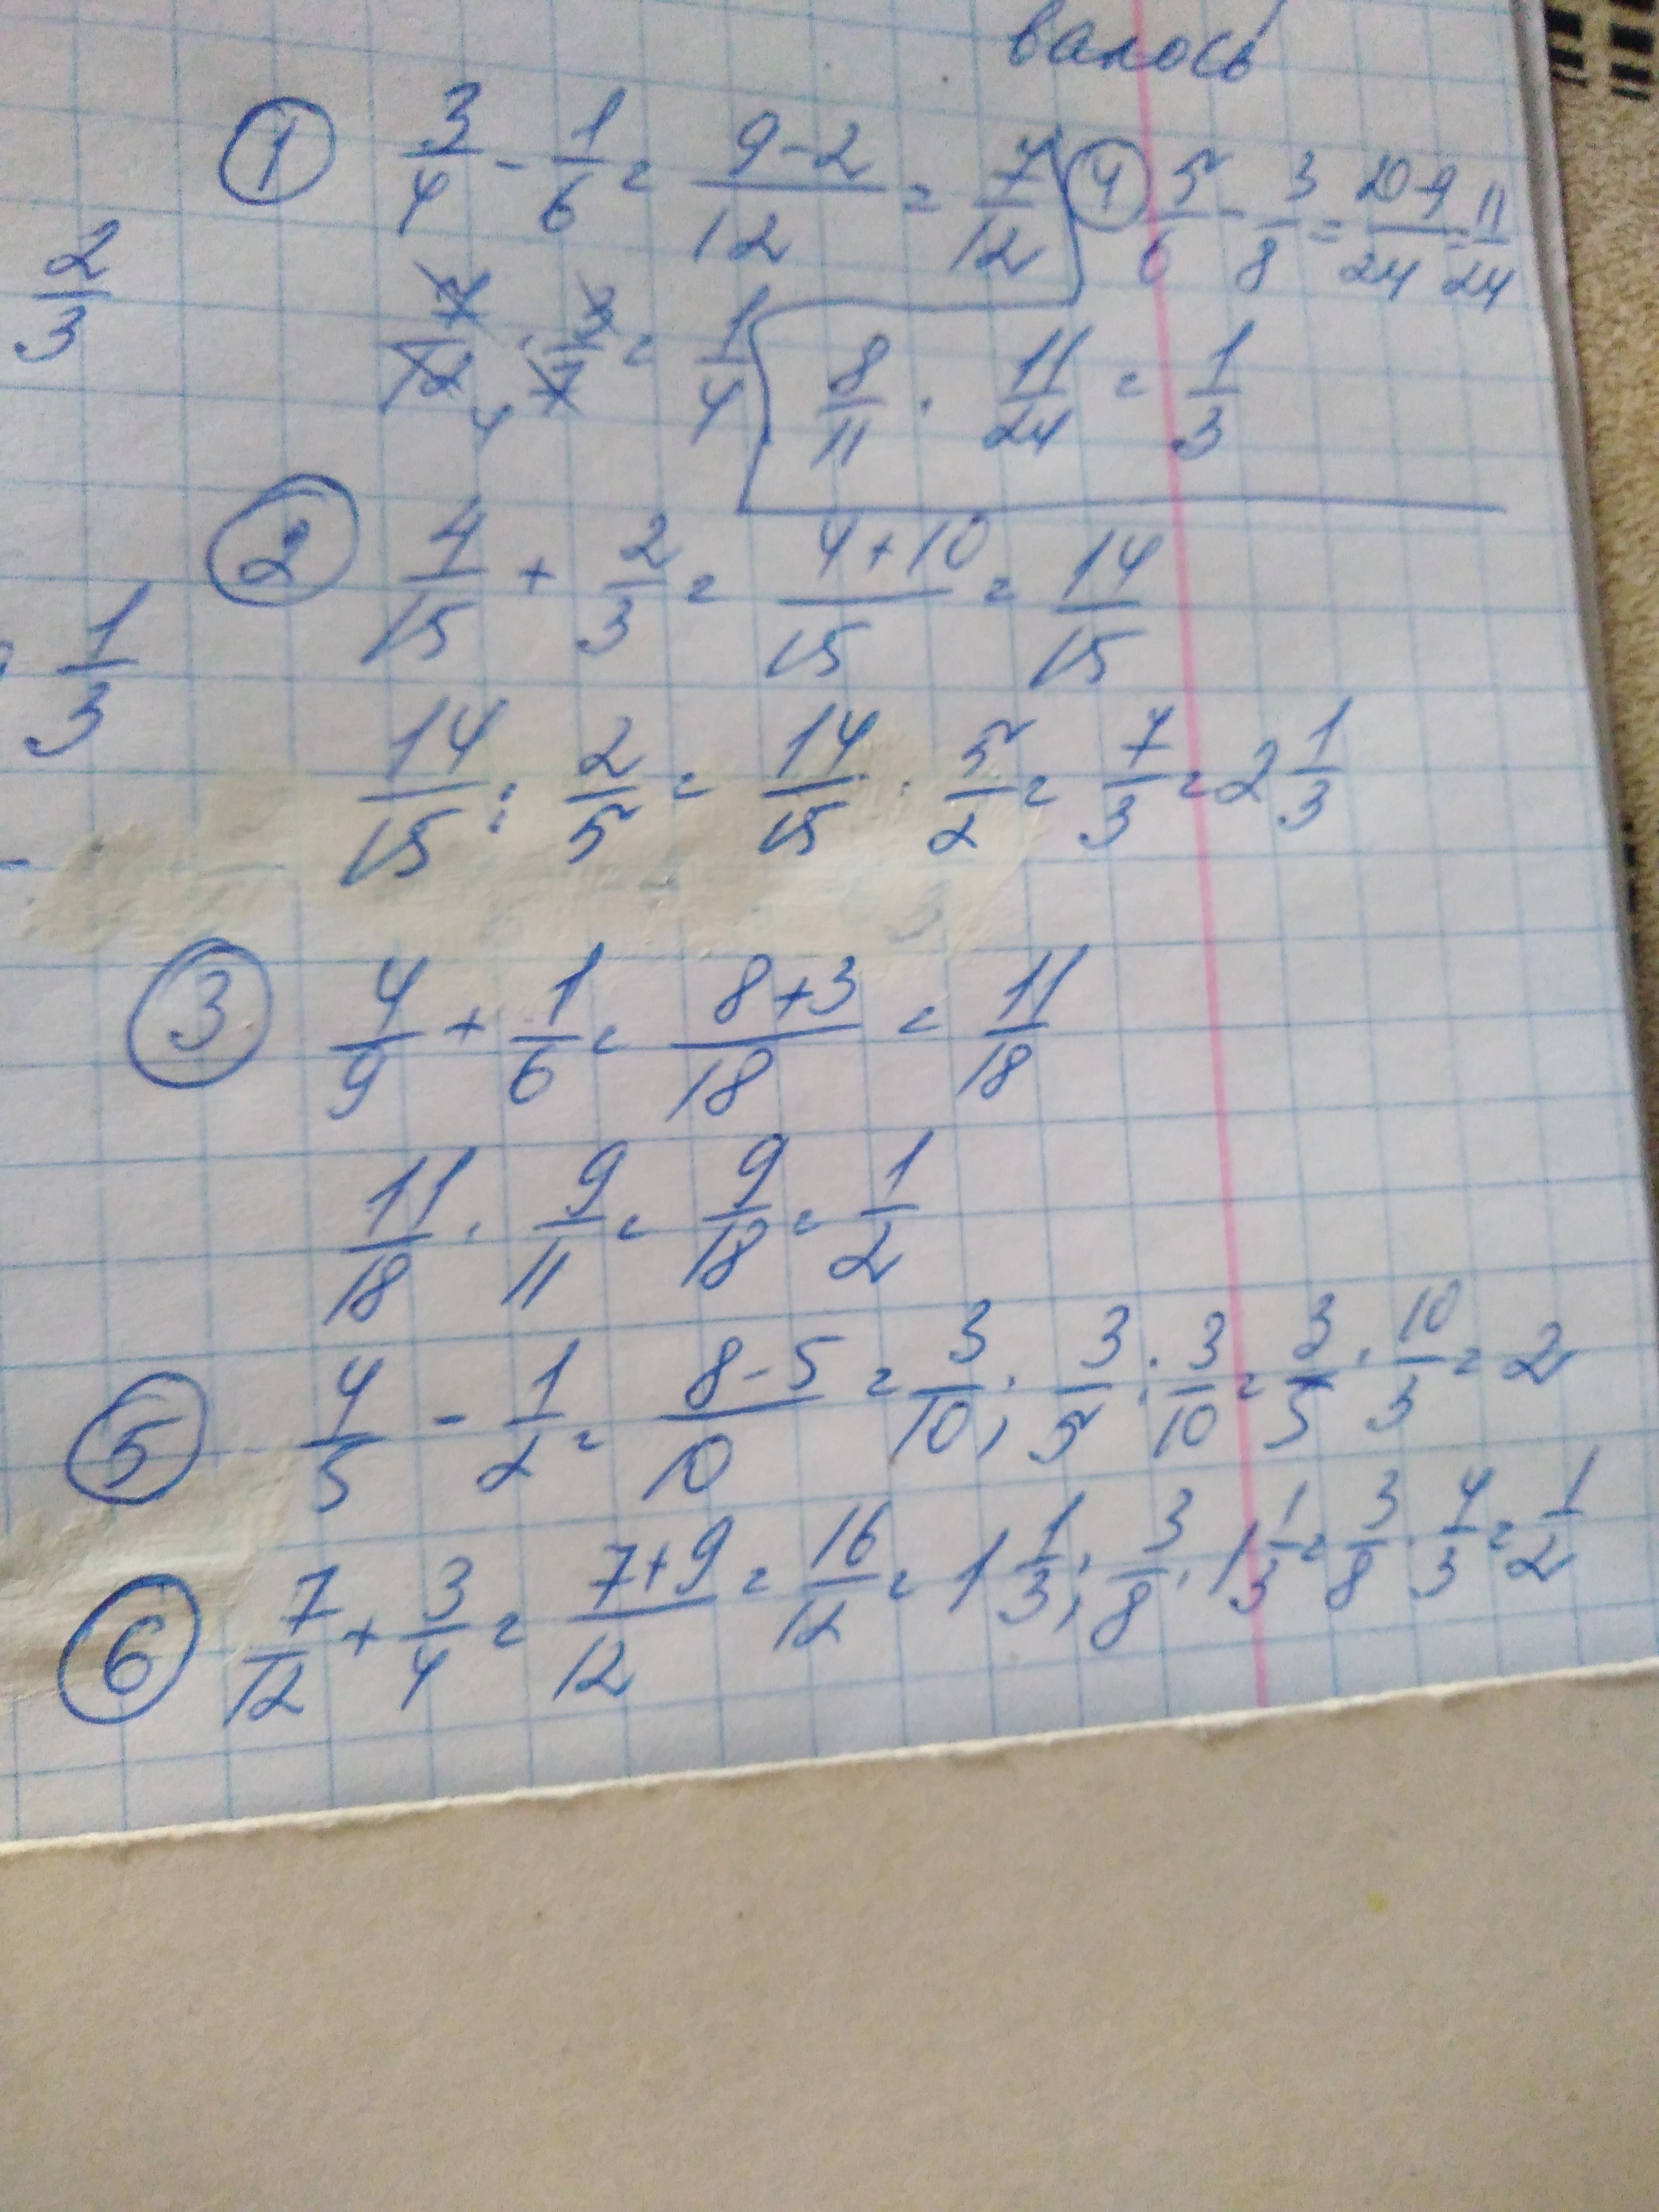 валось
① 3/4 - 1/6 = (9-2)/12 = 7/12
7/12 · 3/7 = 1/4
④ 5/6 - 3/8 = (20-9)/24 = 11/24
8/11 · 11/24 = 1/3
2/3
② 4/15 + 2/3 = (4+10)/15 = 14/15
1/3
14/15 : 2/5 = 14/15 · 5/2 = 7/3 = 2 1/3
③ 4/9 + 1/6 = (8+3)/18 = 11/18
11/18 · 9/11 = 9/18 = 1/2
⑤ 4/5 - 1/2 = (8-5)/10 = 3/10; 3/5 : 3/10 = 3/5 · 10/3 = 2
⑥ 7/12 + 3/4 = (7+9)/12 = 16/12 = 1 1/3; 3/8 · 1 1/3 = 3/8 · 4/3 = 1/2